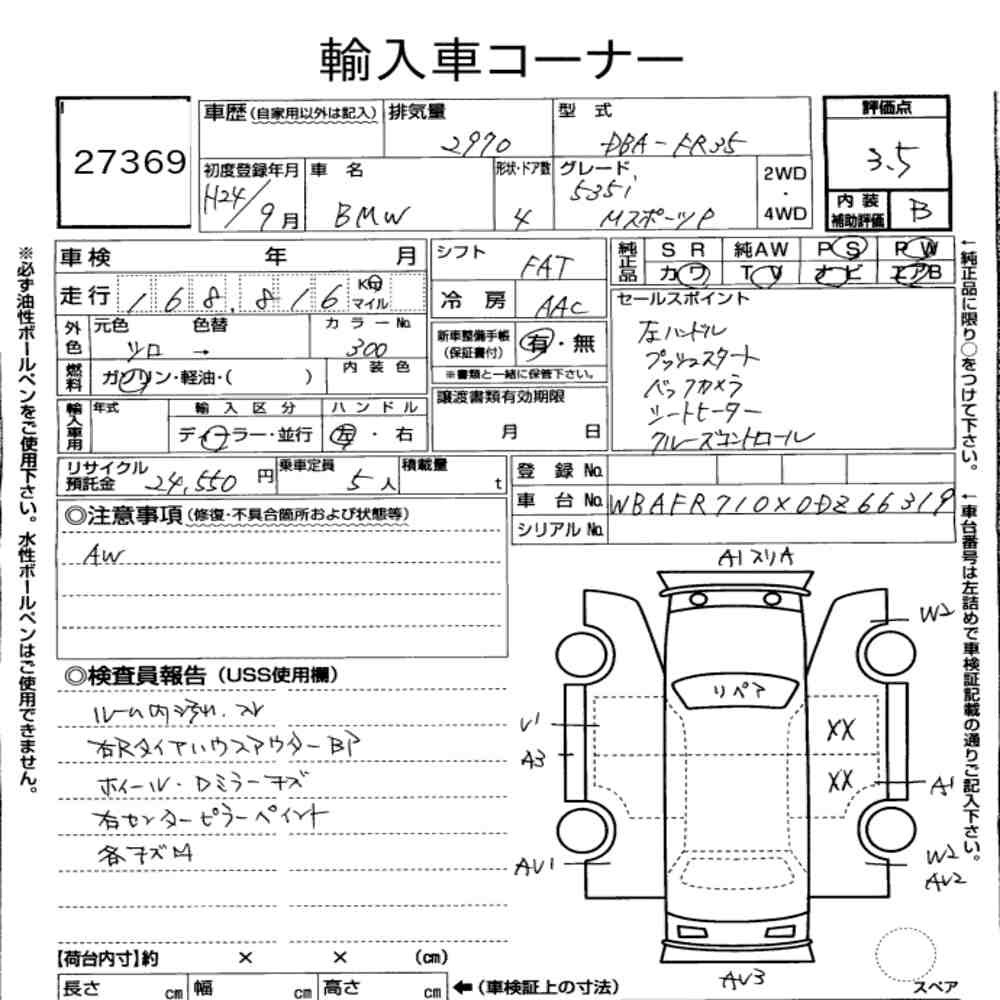 輸入車コーナー
27369
車歴(自家用以外は記入) 排気量 2970 型式 DBA-FR35
初度登録年月 H24/9月 車名 BMW 形状・ドア数 4 グレード 535i MスポーツP 2WD・4WD
評価点 3.5
内装補助評価 B
車検 年 月
走行 168,816 Km マイル
外色 元色 シロ 色替 → カラーNo. 300
燃料 ガソリン・軽油・( ) 内装色
輸入車用 年式 輸入区分 ディーラー・並行 ハンドル 左・右
シフト FAT
冷房 AAC
新車整備手帳(保証書付) 有・無
※書類と一緒に保管下さい。
譲渡書類有効期限
月 日
純正品 SR 純AW PS PW
カワ TV ナビ エアB
セールスポイント
左ハンドル
プッシュスタート
バックカメラ
シートヒーター
クルーズコントロール
リサイクル預託金 24,550円 乗車定員 5人 積載量 t
登録No.
車台No. WBAFR710X0DZ66319
シリアルNo.
◎注意事項(修復・不具合箇所および状態等)
AW
◎検査員報告(USS使用欄)
ルーム内汚れ.スレ
右Rタイヤハウスアウターbp
ホイール・Dミラーキズ
右センターピラーペイント
各キズ凹
A1スリA
W2
リペア
U1
XX
A3
XX
A1
AU1
W2
AU2
AU3
スペア
【荷台内寸】約 × × (cm)
長さ cm 幅 cm 高さ cm ←(車検証上の寸法)
※必ず油性ボールペンをご使用下さい。水性ボールペンはご使用できません。
←純正品に限り○をつけて下さい。
←車台番号は左詰めで車検証記載の通りご記入下さい。